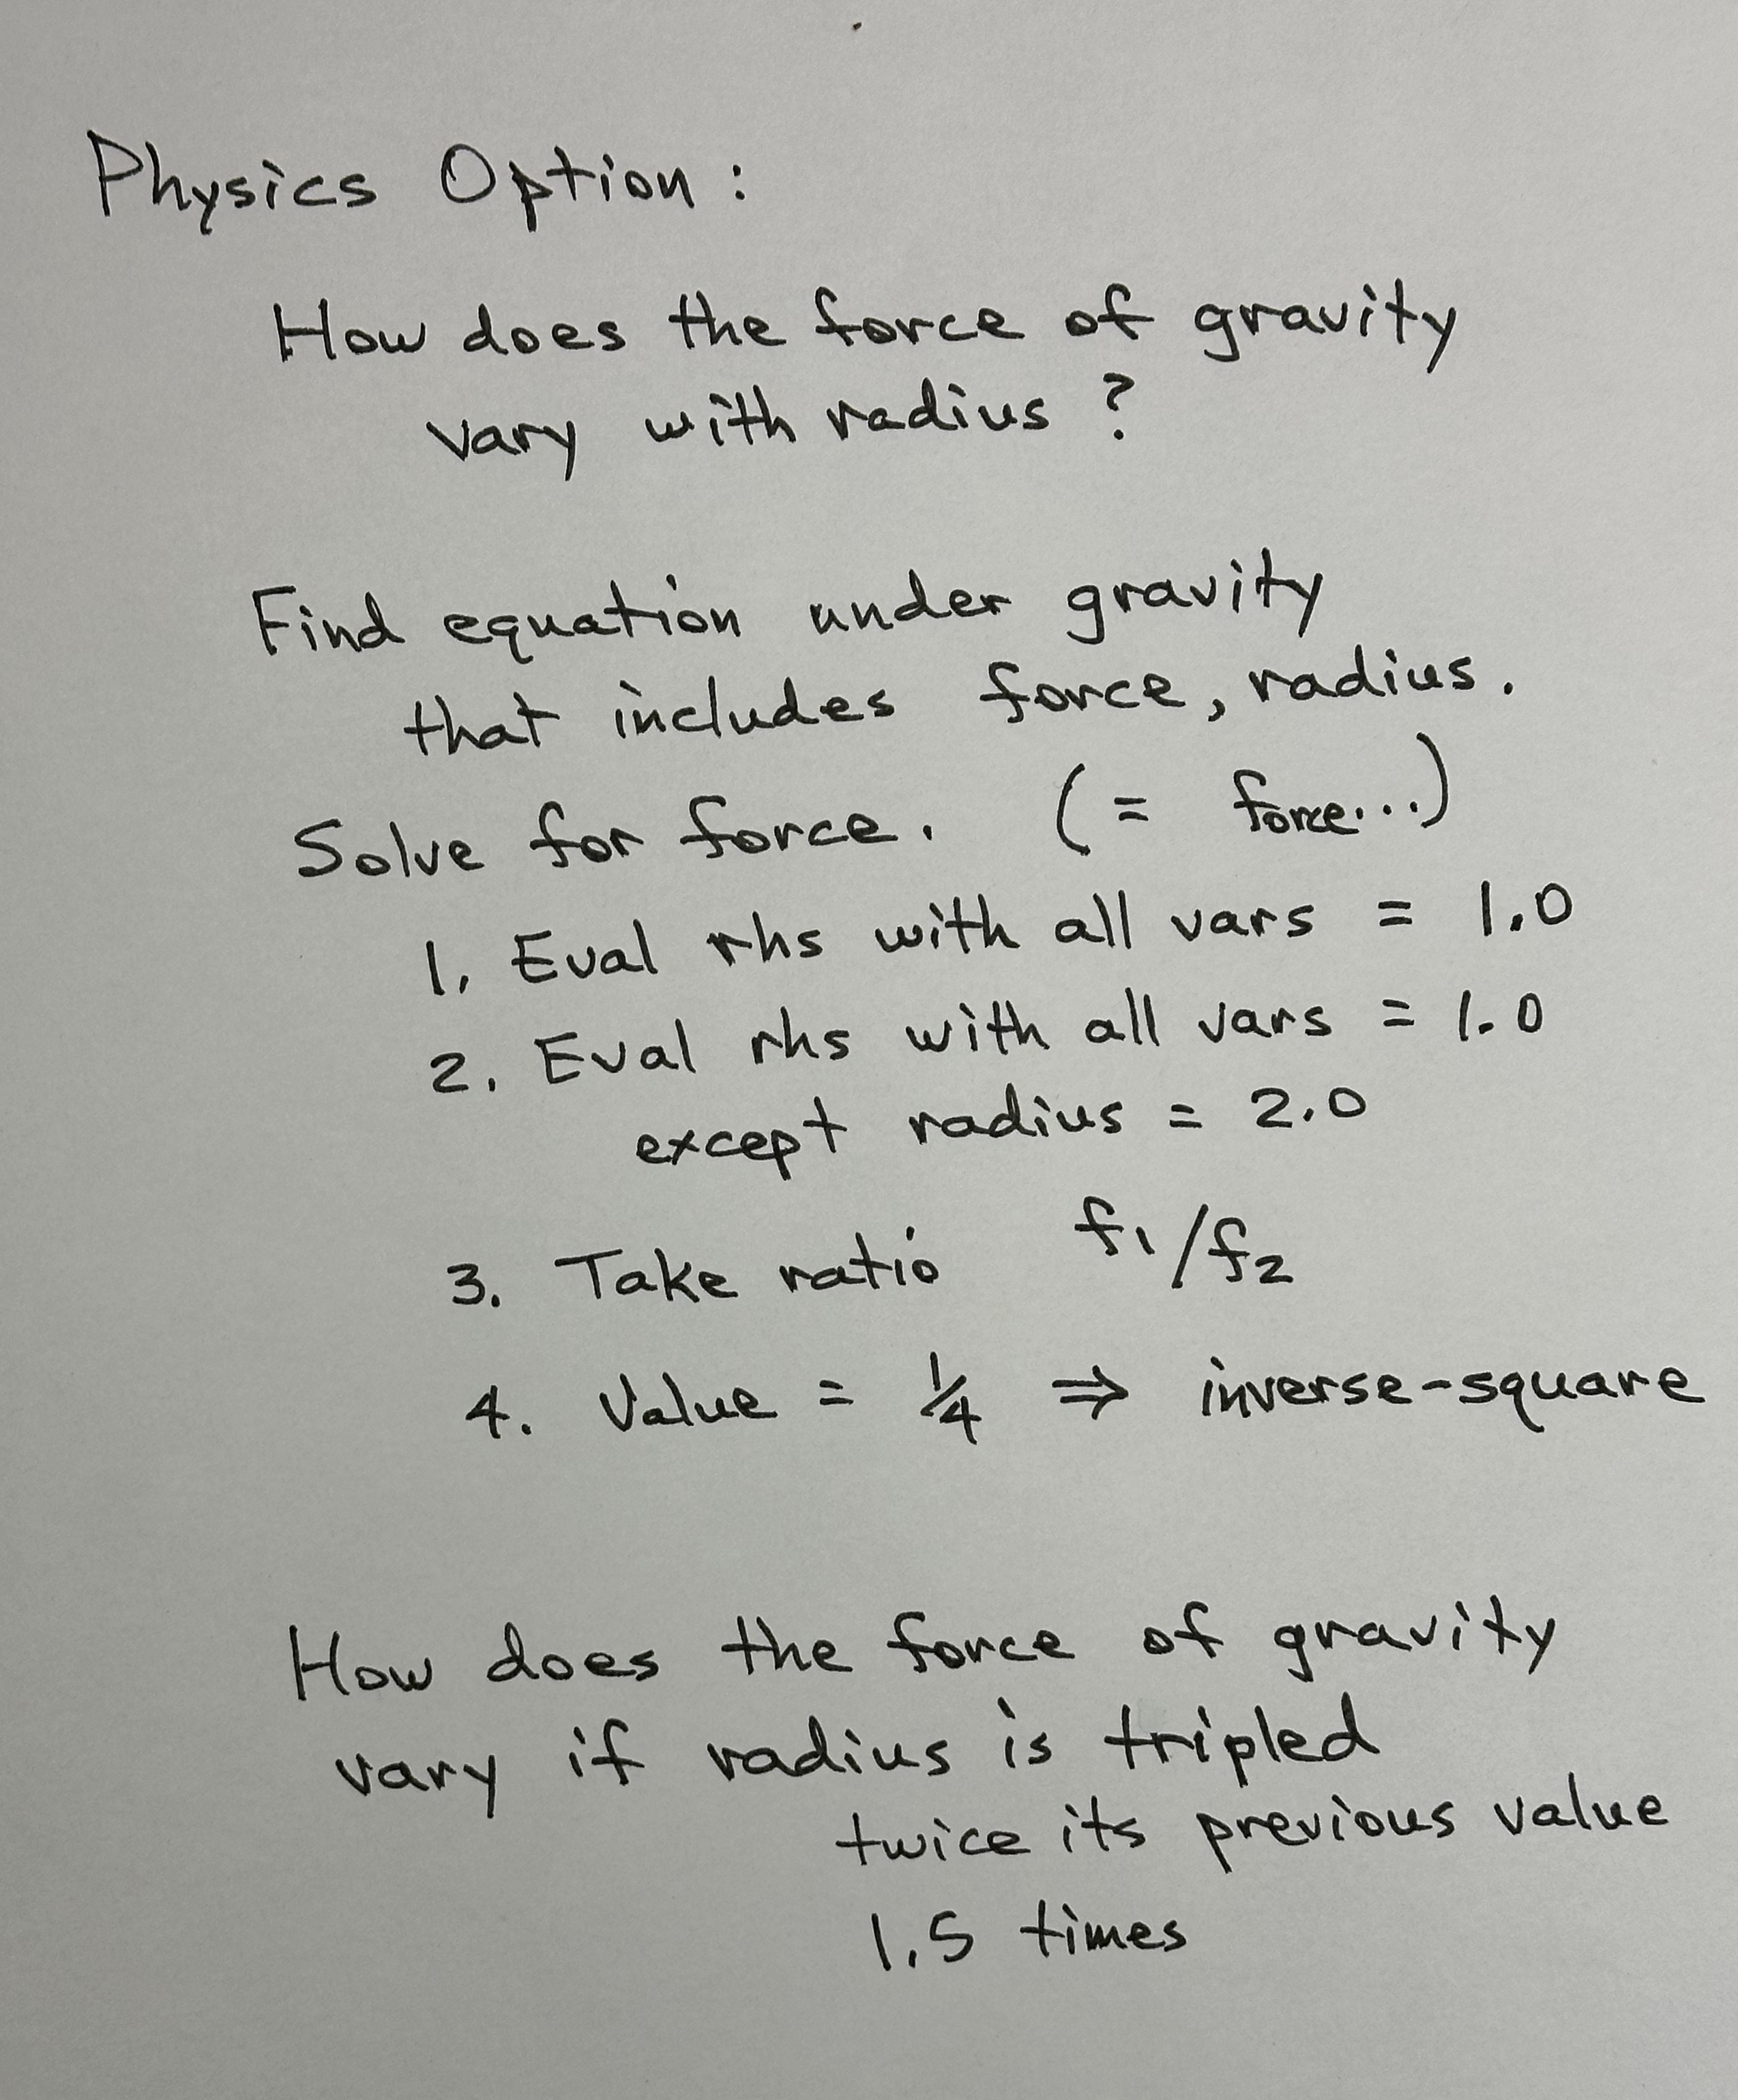 Physics Option:
How does the force of gravity
vary with radius?
Find equation under gravity
that includes force, radius.
Solve for force. (= force...)
1. Eval rhs with all vars = 1.0
2. Eval rhs with all vars = 1.0
except radius = 2.0
3. Take ratio f1/f2
4. Value = 1/4 ⇒ inverse-square
How does the force of gravity
vary if radius is tripled
twice its previous value
1.5 times